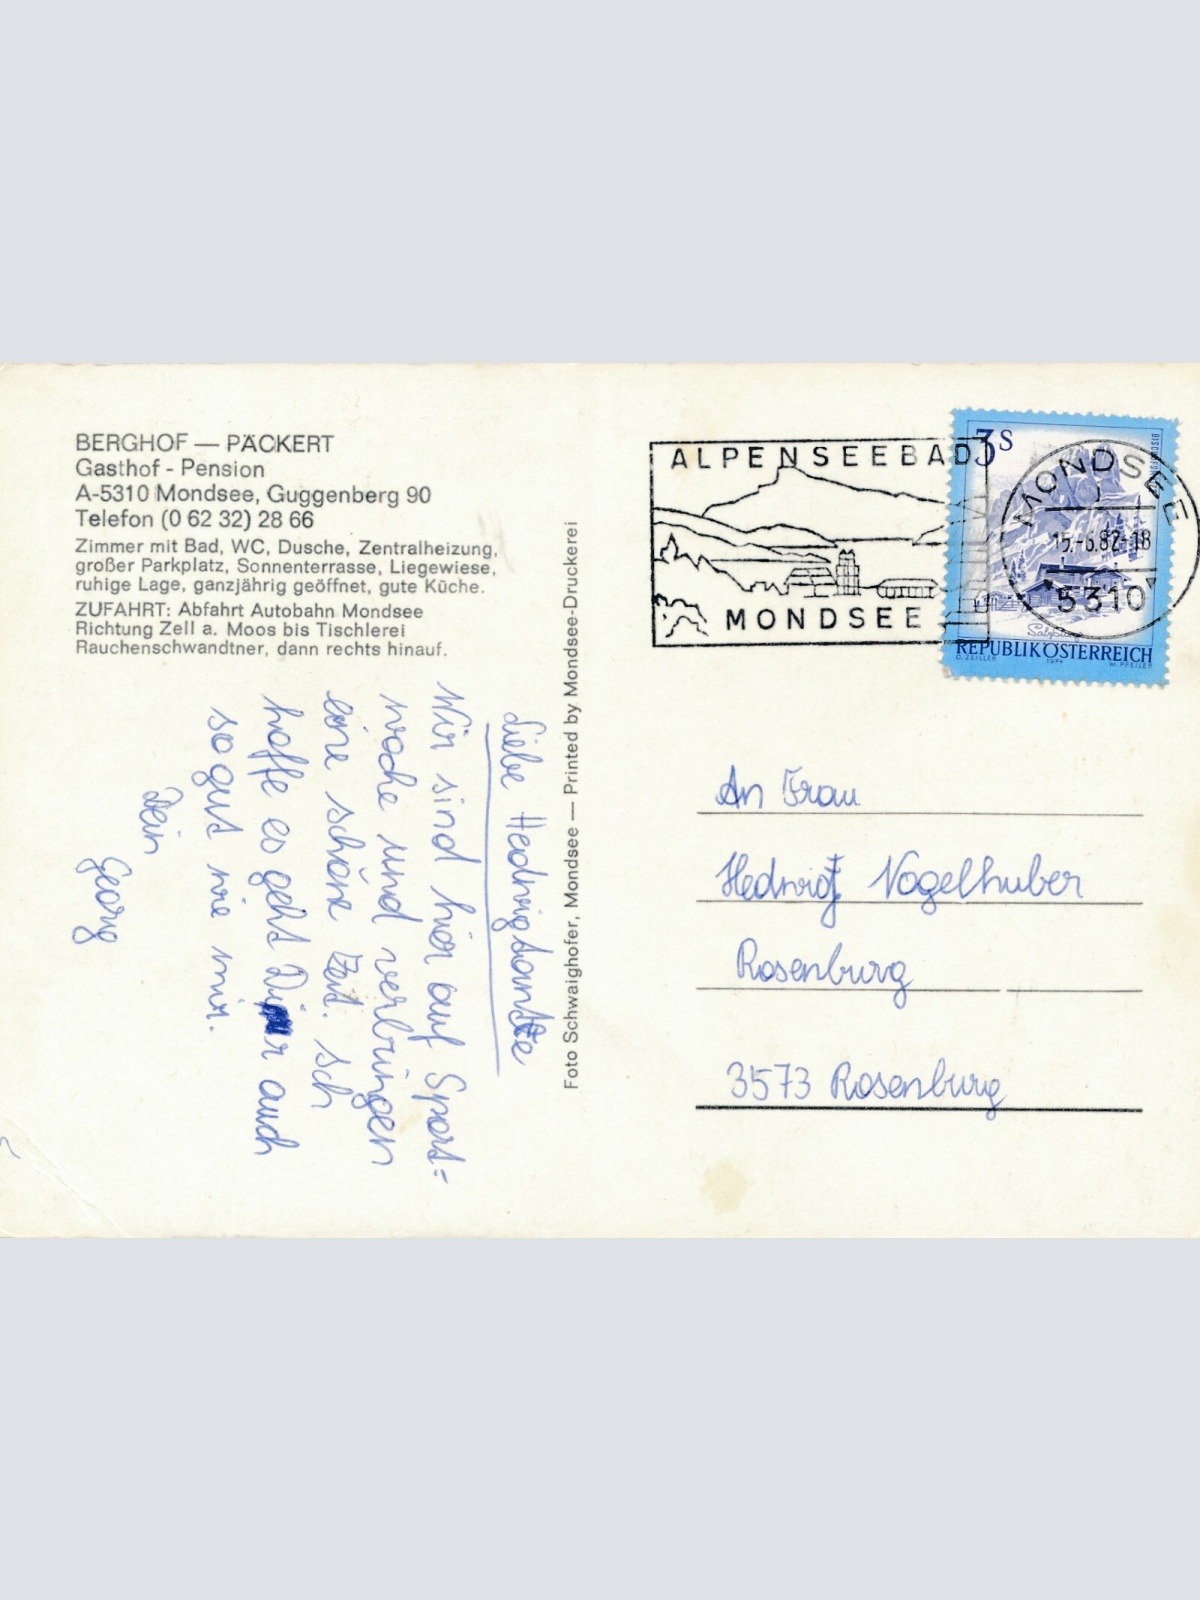 BERGHOF — PÄCKERT
Gasthof - Pension
A-5310 Mondsee, Guggenberg 90
Telefon (0 62 32) 28 66
Zimmer mit Bad, WC, Dusche, Zentralheizung,
großer Parkplatz, Sonnenterrasse, Liegewiese,
ruhige Lage, ganzjährig geöffnet, gute Küche.
ZUFAHRT: Abfahrt Autobahn Mondsee
Richtung Zell a. Moos bis Tischlerei
Rauchenschwandtner, dann rechts hinauf.
Liebe Hedwigtante
Wir sind hier auf Sport=
woche und verbringen
eine schöne Zeit. Ich
hoffe es geht Dir auch
so gut wie mir.
Dein
Georg
Foto Schwaighofer, Mondsee — Printed by Mondsee-Druckerei
ALPENSEEBAD
MONDSEE
3 S
BISCHOFSMÜTZE
MONDSEE
15.-6.82-18
5310
Salzburg
REPUBLIK ÖSTERREICH
O. ZEILLER 1974 W. PFEILER
An Frau
Hedwig Vogelhuber
Rosenburg
3573 Rosenburg